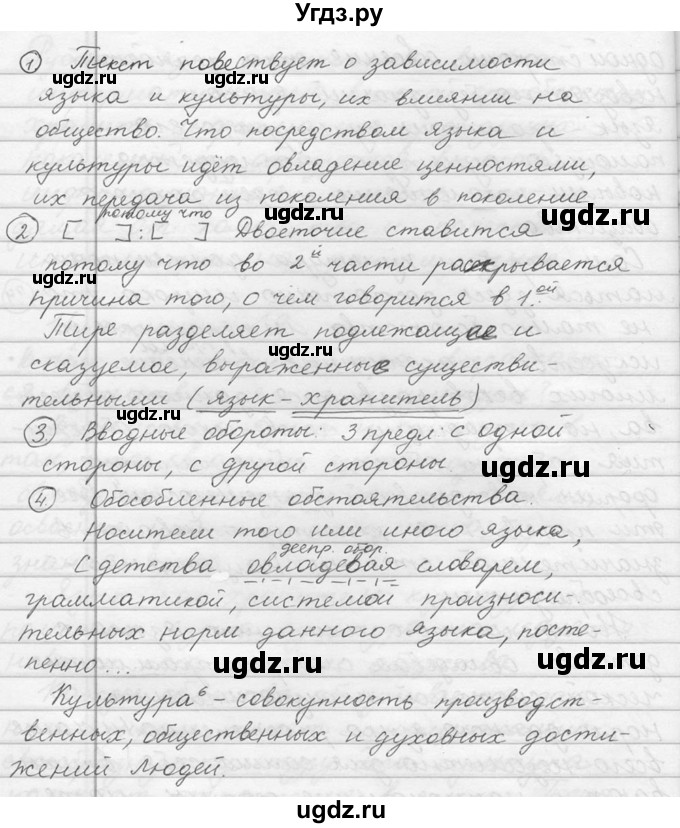 Угдз.ру
① Текст повествует о зависимости
ugdz.ru ugdz.ru
языка и культуры, их влиянии на
общество. Что посредством языка и
ugdz.ru
культуры идёт овладение ценностями,
их передача из поколения в поколение
ugdz.ru
потому что
② [ ]:[ ] Двоеточие ставится
ugdz.ru
потому что во 2й части раскрывается
причина того, о чём говорится в 1ой.
Тире разделяет подлежащее и
ugdz.ru
сказуемое, выраженные существи-
тельными (язык – хранитель)
ugdz.ru
③ Вводные обороты: 3 предл: с одной
стороны, с другой стороны.
ugdz.ru
④ Обособленные обстоятельства:
Носители того или иного языка,
деепр. обор.
С детства овладевая словарем,
ugdz.ru
грамматикой, системой произноси-
тельных норм данного языка, посте-
пенно...
ugdz.ru ugdz.ru
Культура⁶ – совокупность производст-
венных, общественных и духовных дости-
ugdz.ru
жений людей.
ugdz.ru